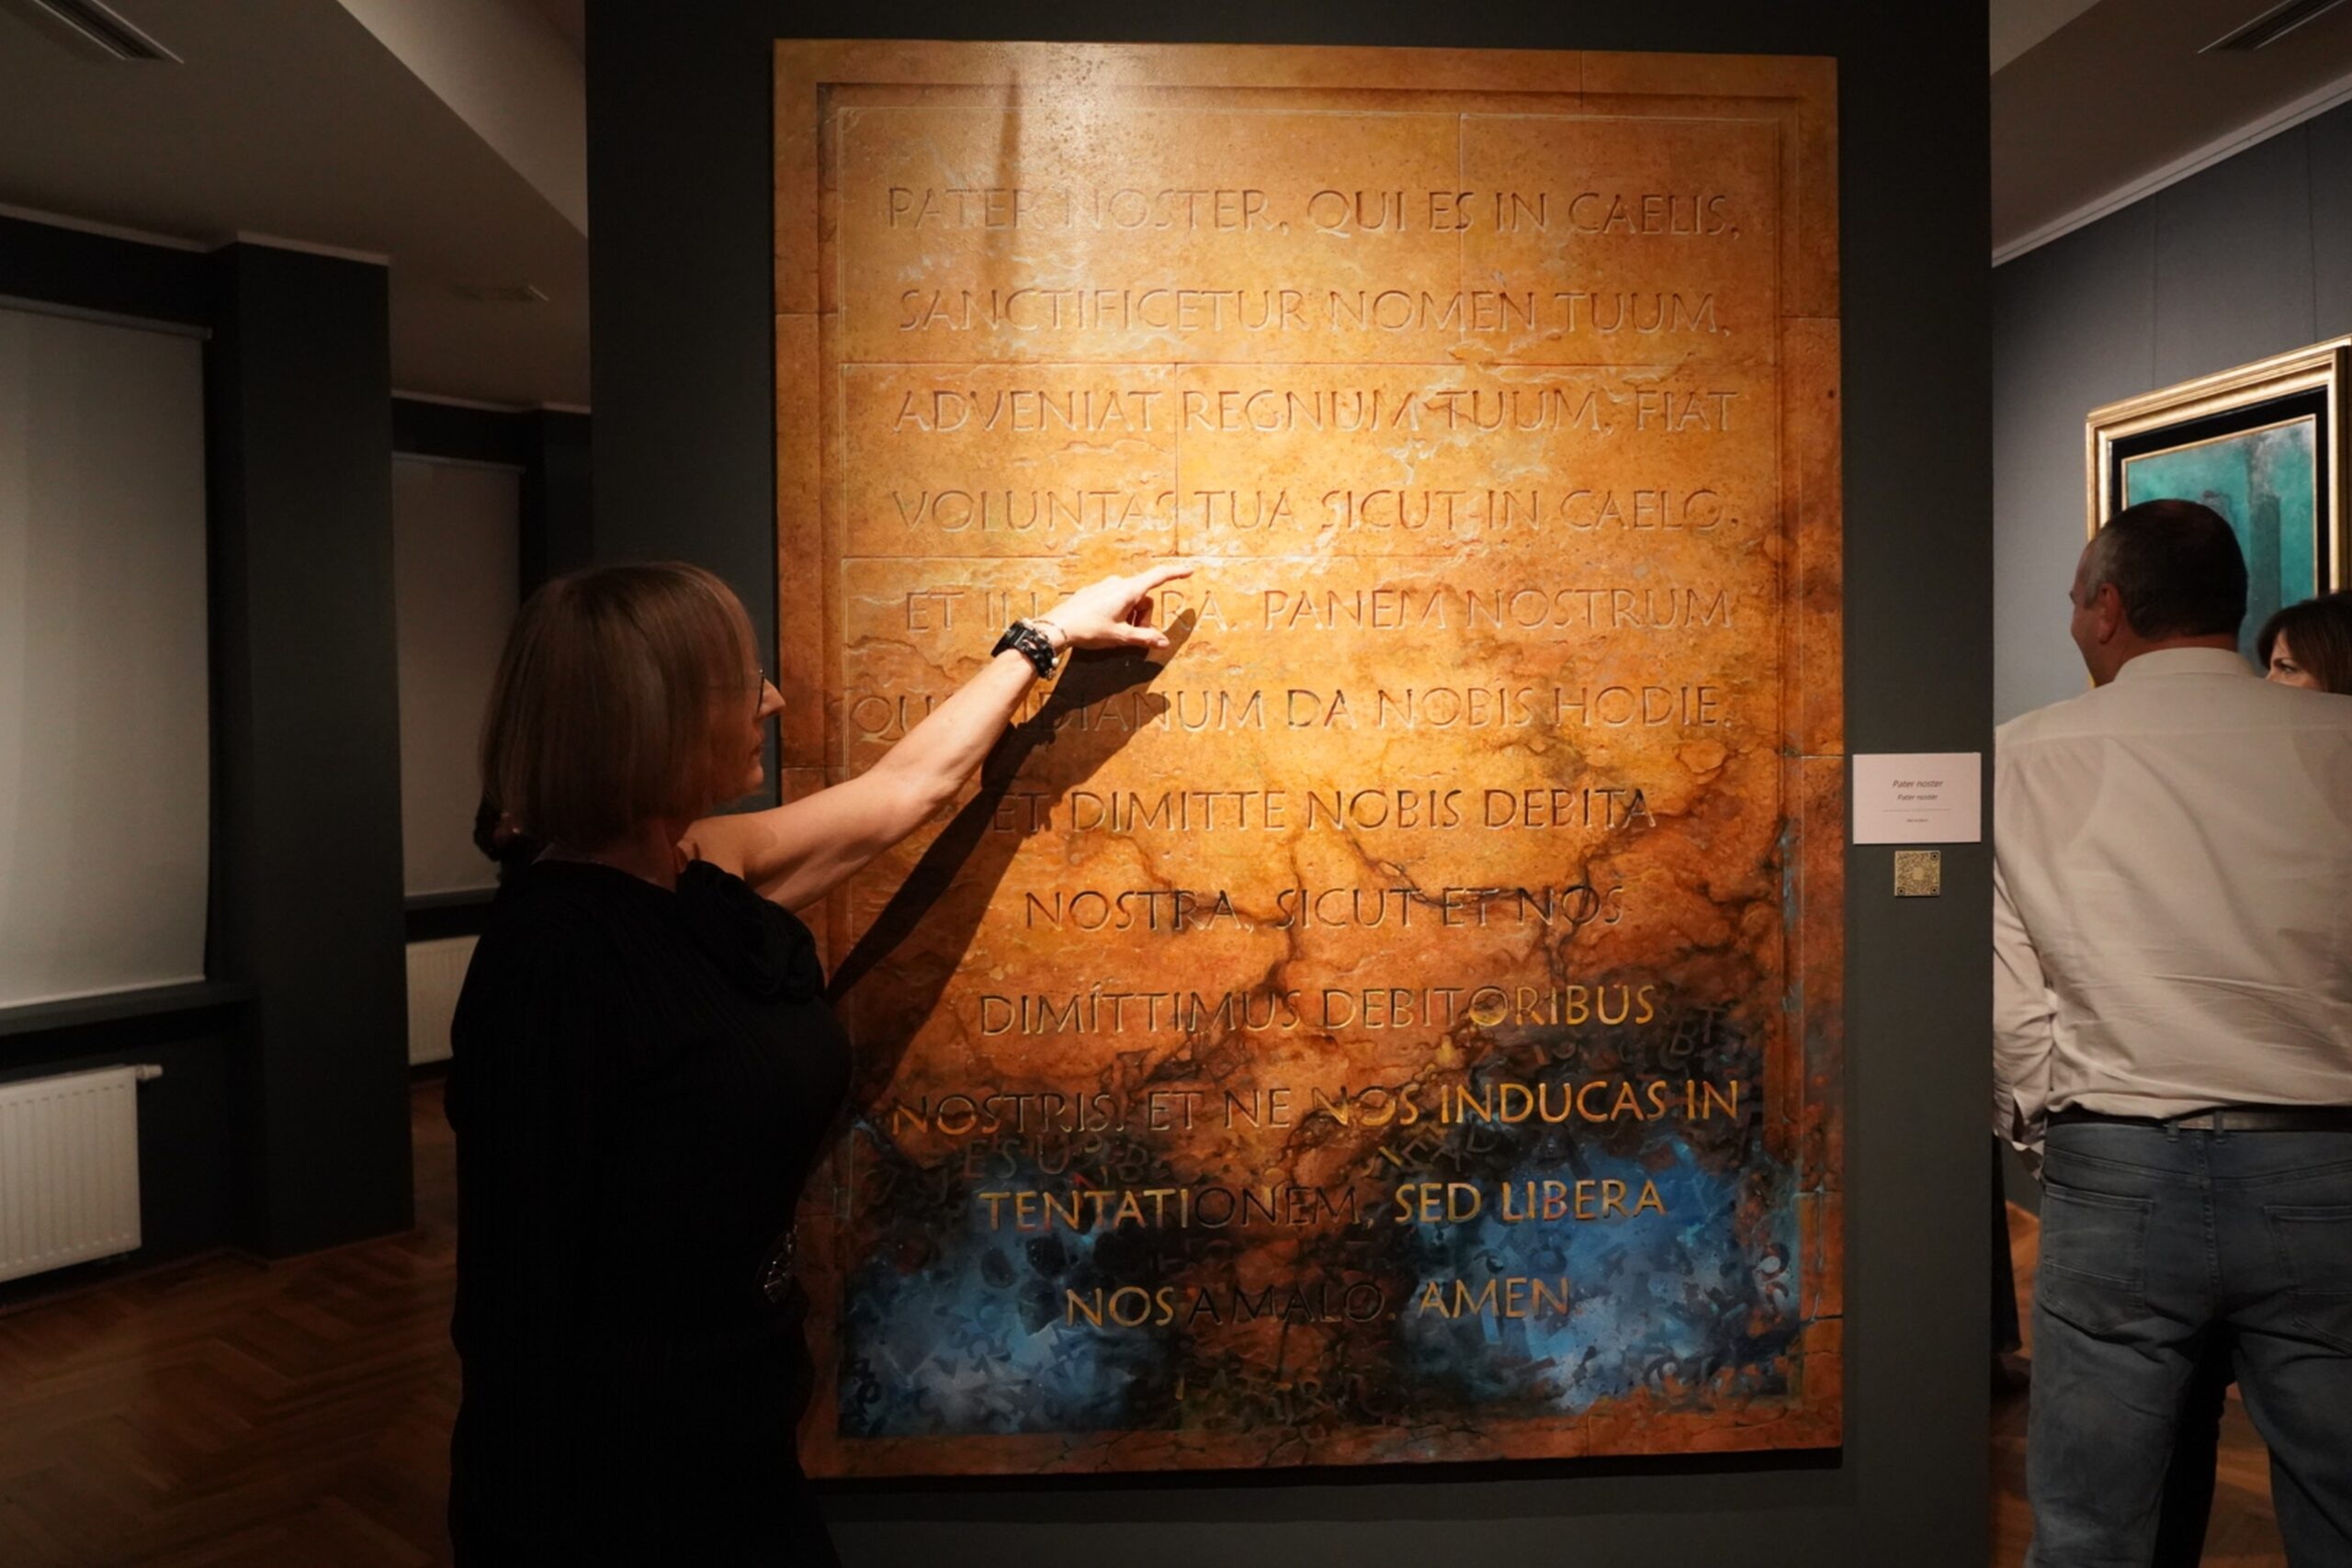 PATER NOSTER, QUI ES IN CAELIS,
SANCTIFICETUR NOMEN TUUM,
ADVENIAT REGNUM TUUM, FIAT
VOLUNTAS TUA SICUT IN CAELO,
ET IN RA. PANEM NOSTRUM
QU IDIANUM DA NOBIS HODIE,
ET DIMITTE NOBIS DEBITA
NOSTRA, SICUT ET NOS
DIMÍTTIMUS DEBITORIBUS
NOSTRIS, ET NE NOS INDUCAS IN
TENTATIONEM, SED LIBERA
NOS A MALO. AMEN
Pater noster
Pater noster